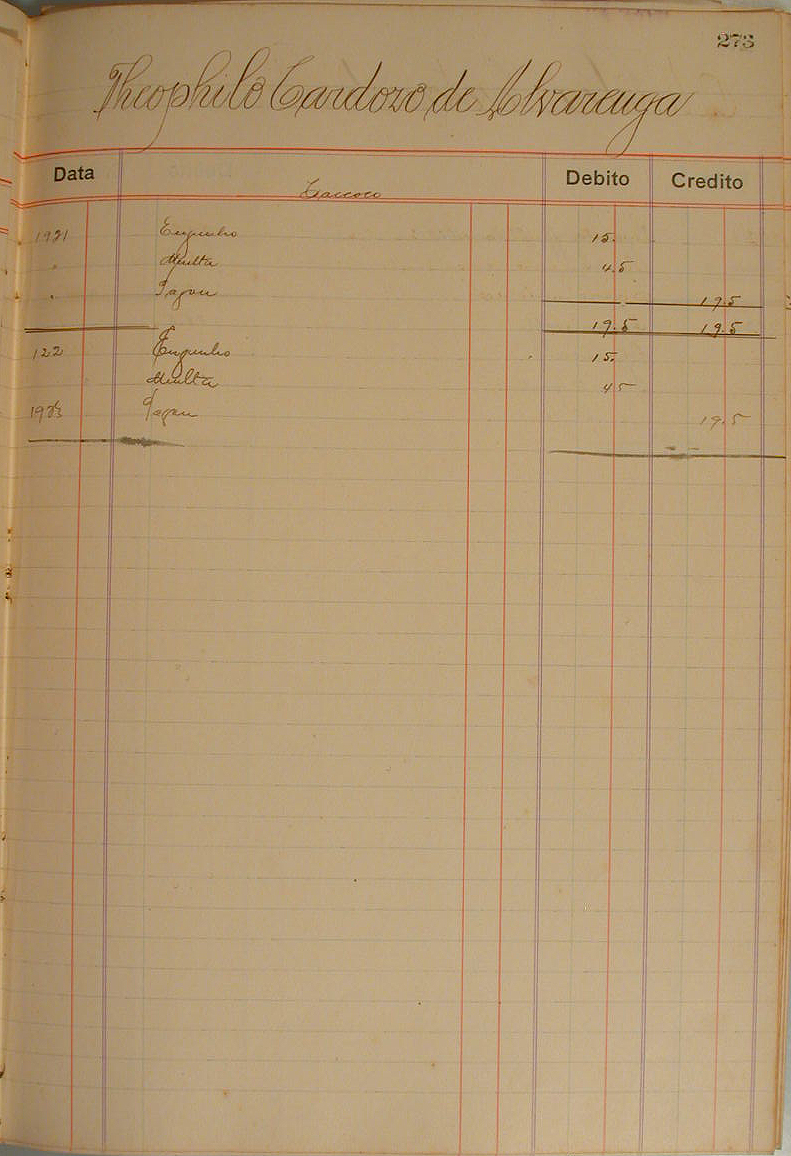 273
Theophilo Cardozo de Alvarenga
Data Debito Credito
1921 Engenho 15.
" Multa 4.5
" Pagou 19.5
19.5 19.5
122 Engenho 15.
Multa 45
1923 Pagou 19.5